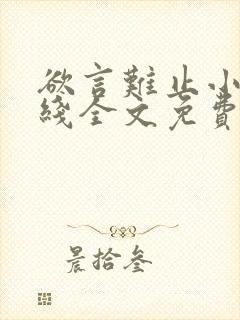 欲言難止小
綫全文免費
晨拾叁